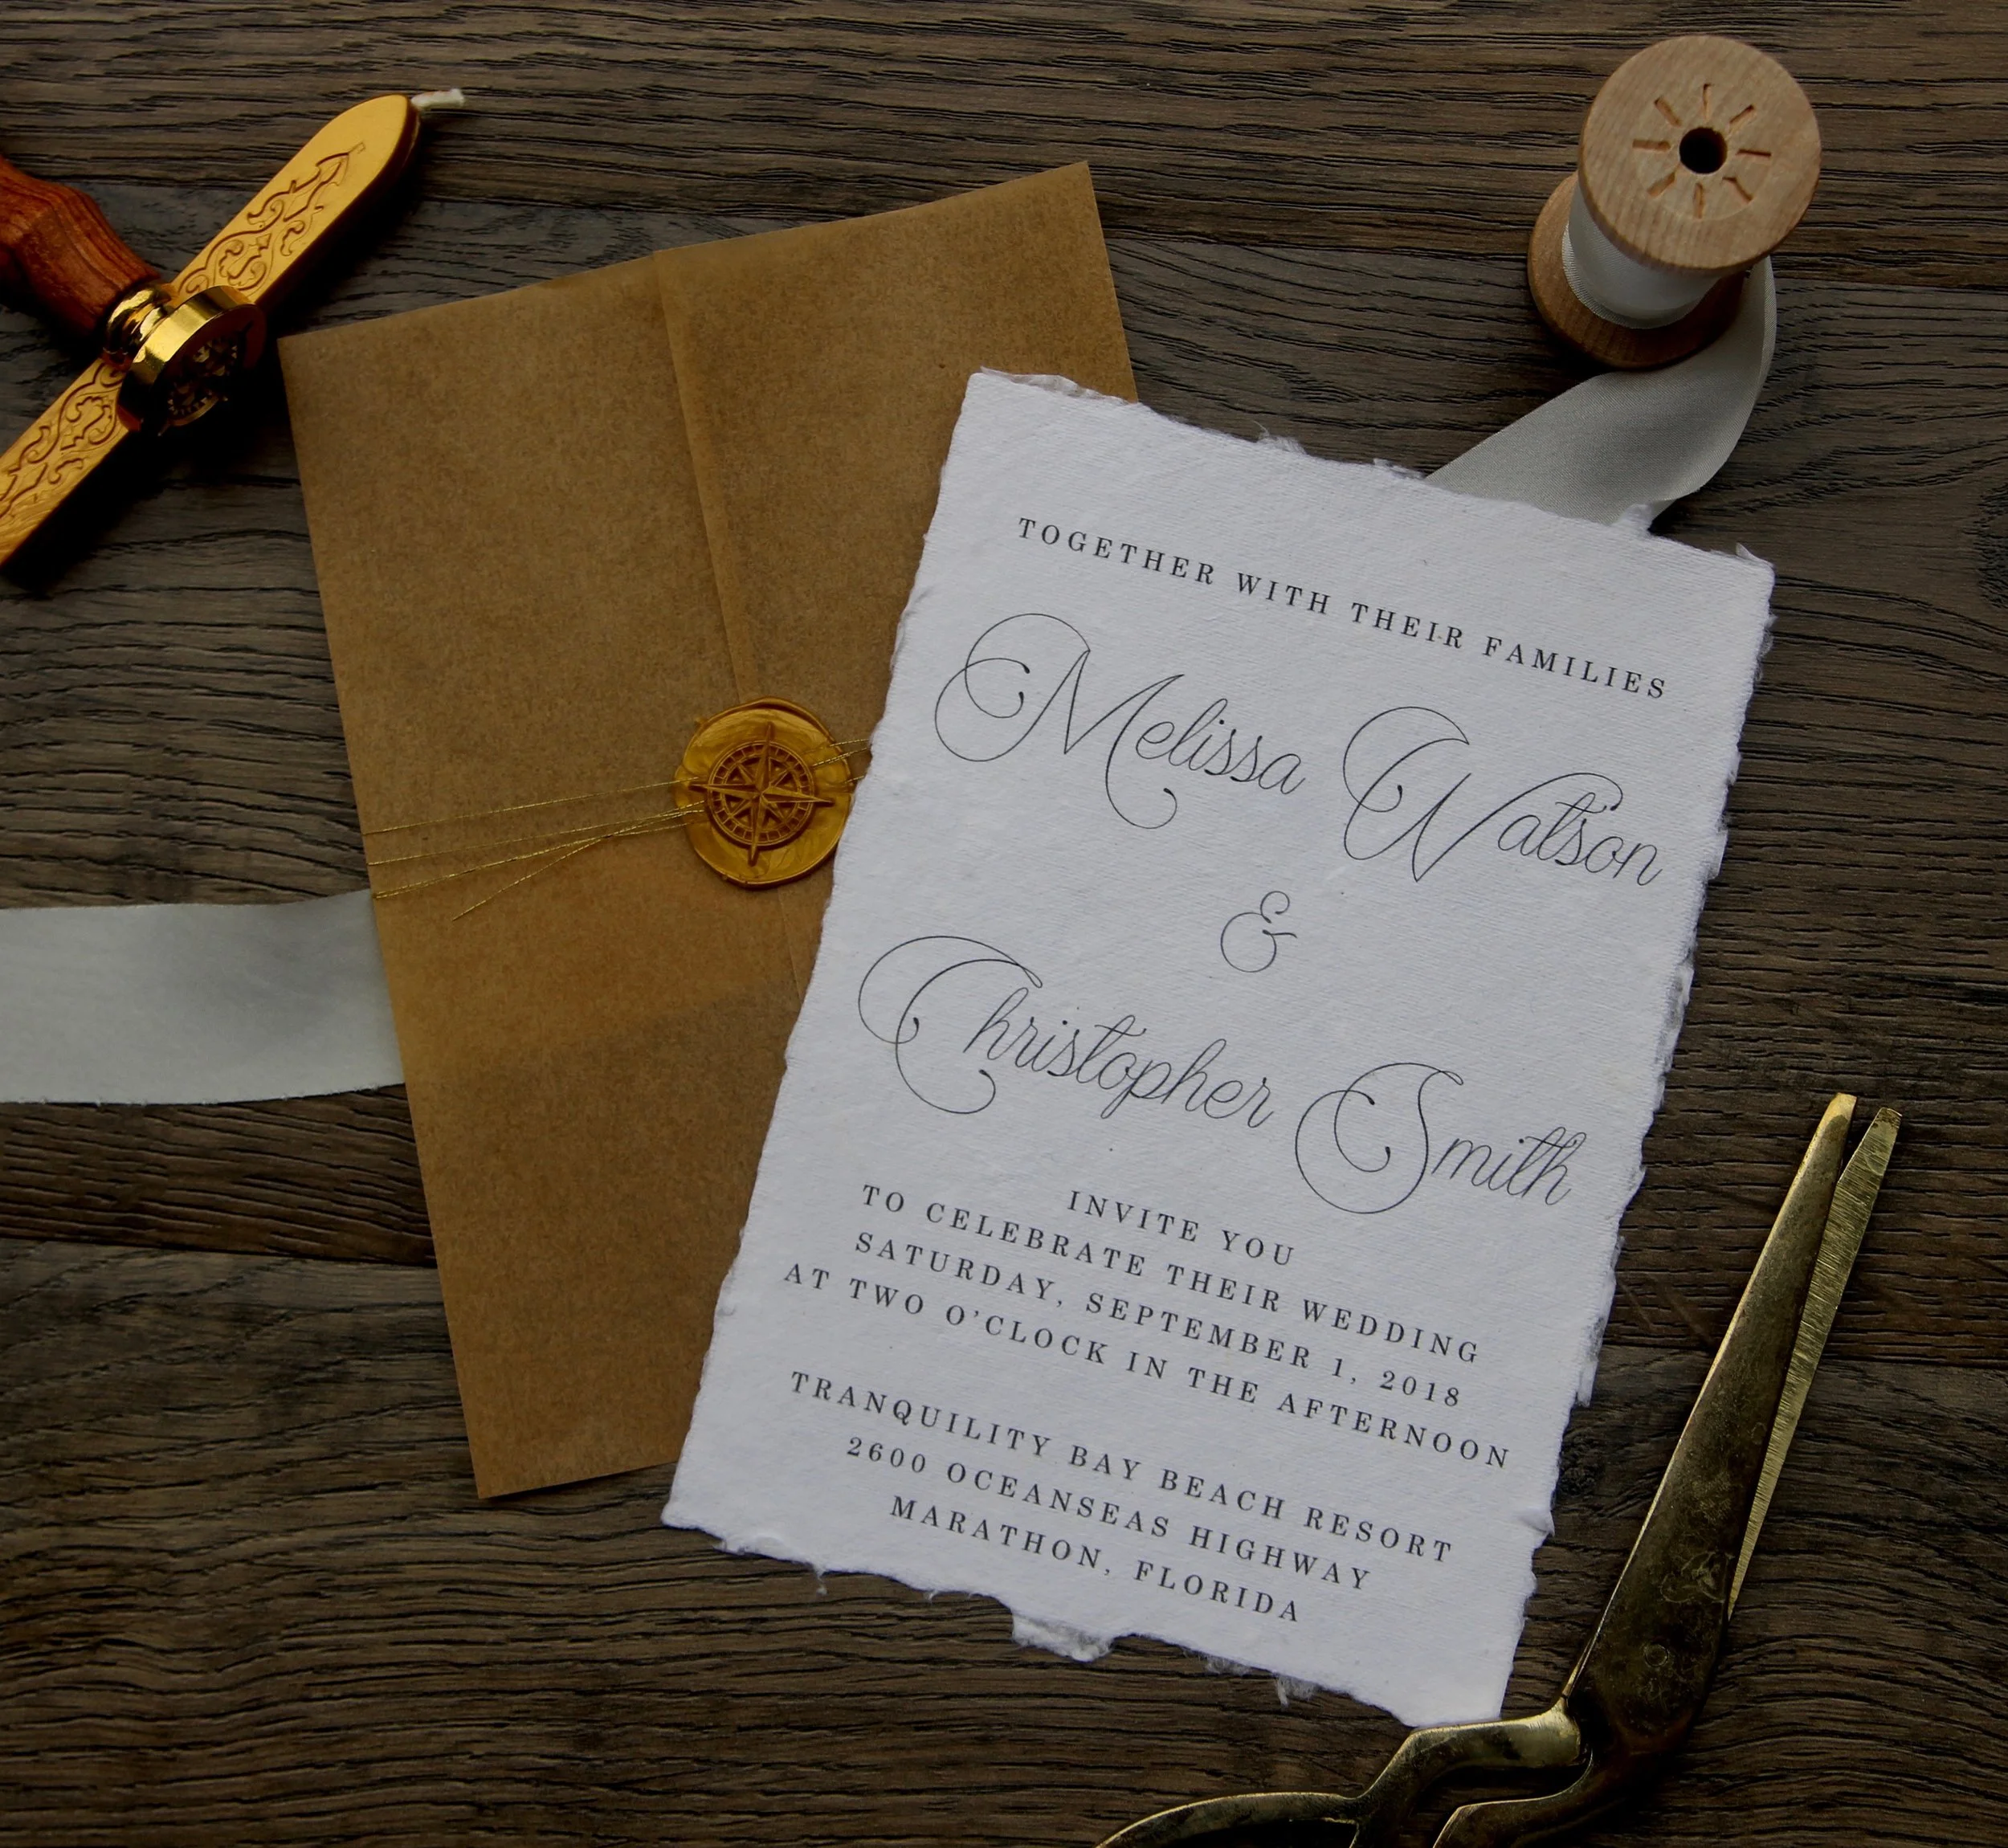 TOGETHER WITH THEIR FAMILIES
Melissa Watson
&
Christopher Smith
INVITE YOU
TO CELEBRATE THEIR WEDDING
SATURDAY, SEPTEMBER 1, 2018
AT TWO O'CLOCK IN THE AFTERNOON
TRANQUILITY BAY BEACH RESORT
2600 OCEANSEAS HIGHWAY
MARATHON, FLORIDA